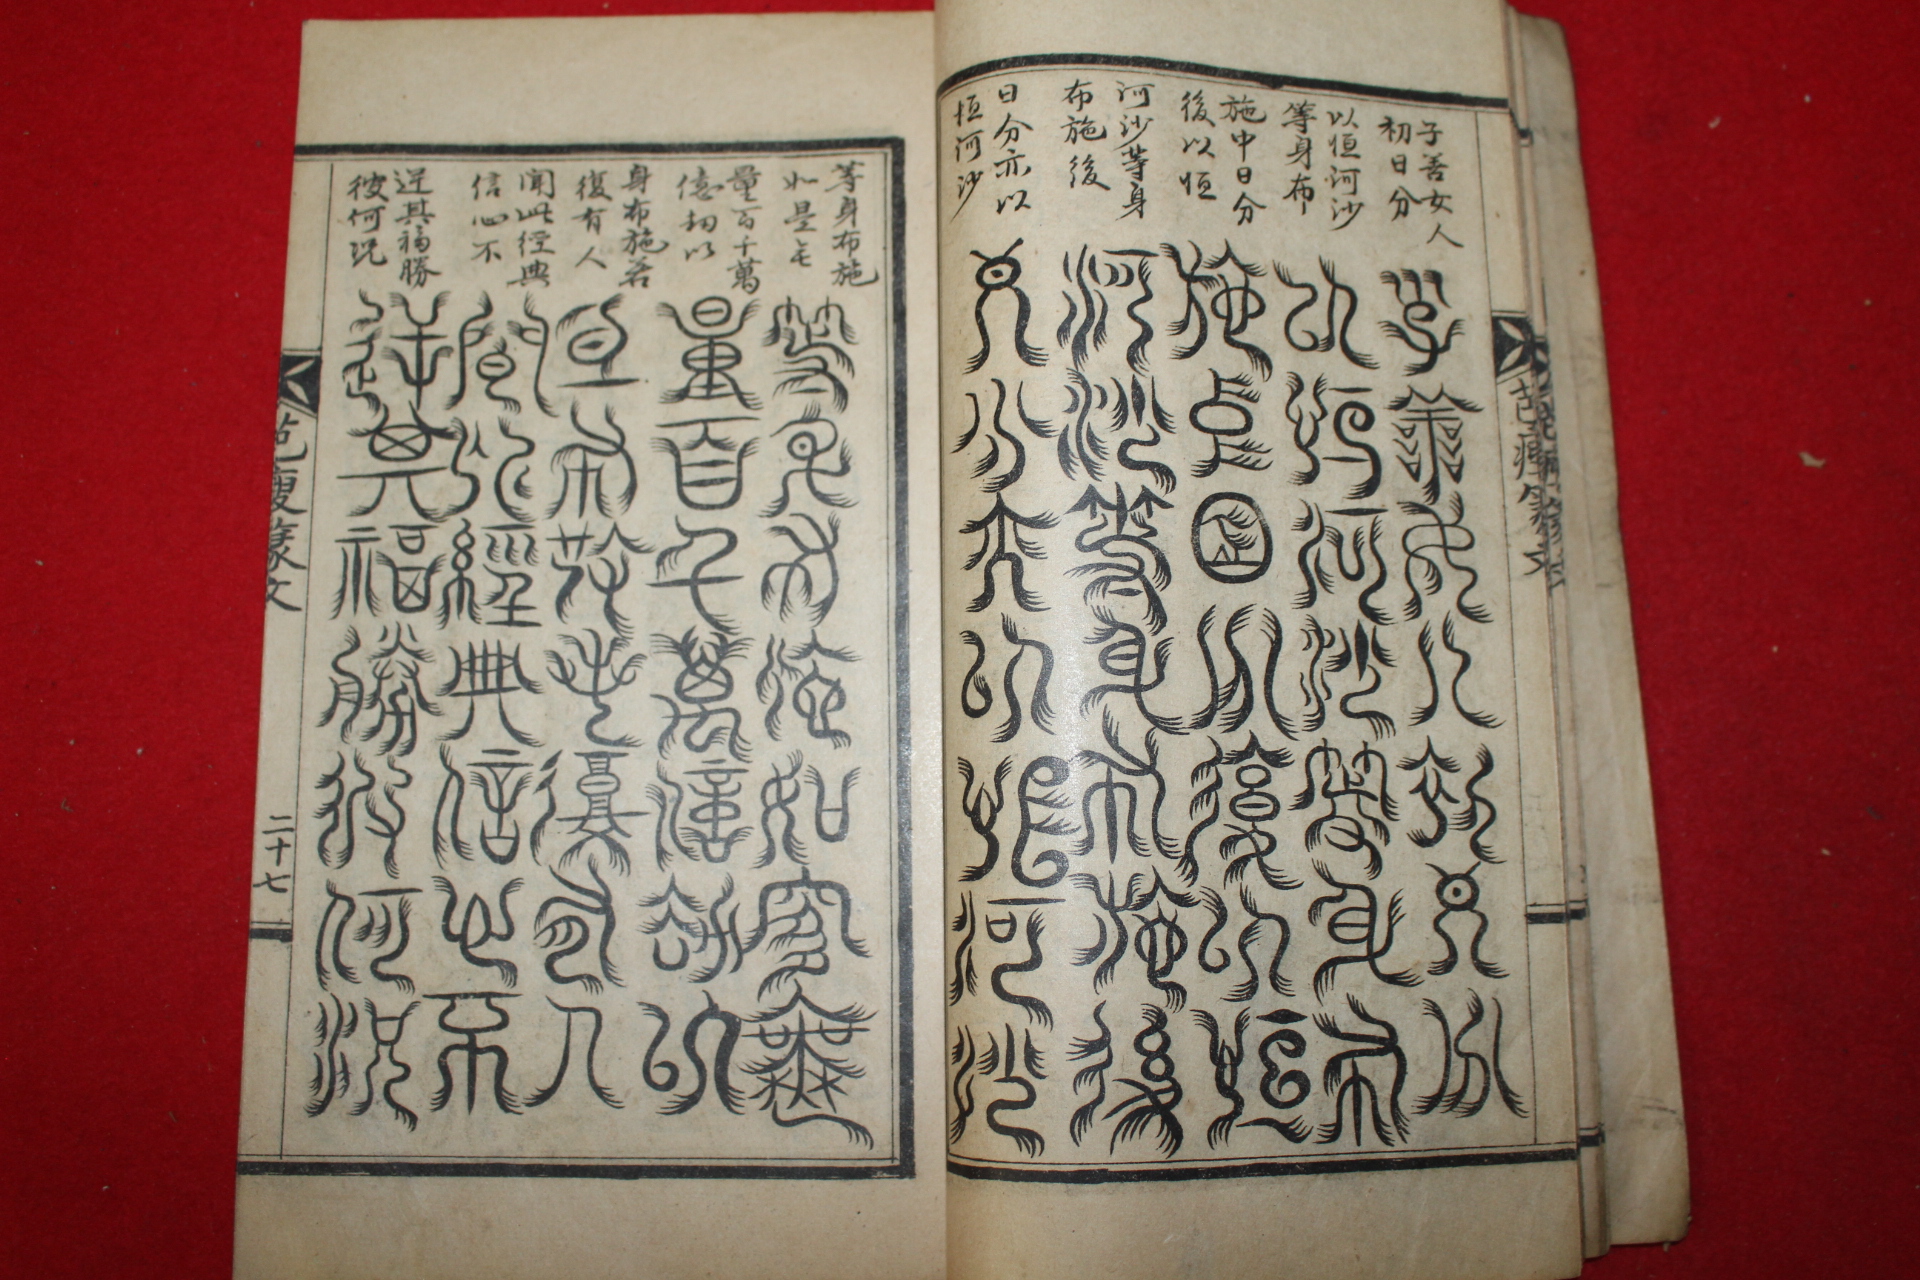 芭瘦篆文
子善女人
初日分
以恒河沙
等身布
施中日分
後以恒
河沙等身
布施後
日分亦以
恒河沙
子善女人初日分
以恒河沙等身布
施中日分復以恒
河沙等身布施後
日分亦以恒河沙
等身布施
如是无
量百千萬
億劫以
身布施若
復有人
聞此經典
信心不
逆其福勝
彼何況
等身布施如是無
量百千萬億劫以
身布施若復有人
聞此經典信心不
逆其福勝彼何況
芭瘦篆文
二十七